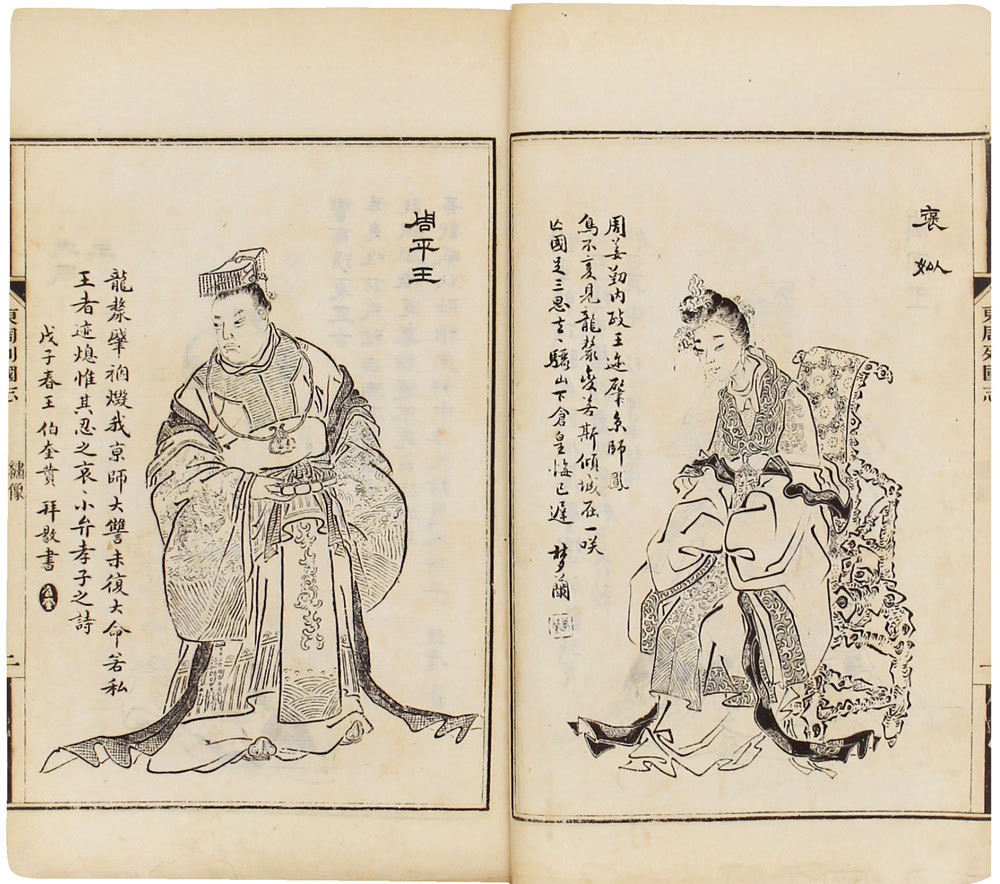 東周列國志
褒姒
周姜勤内政王迹肇京師鳳
鳥不复見龍漦变若斯傾城在一咲
亾國足三思去〻驪山下倉皇悔已遲 夢蘭
周平王
龍漦肇禍燬我京師大讐未復大命若私
王者迹熄惟其忍之哀〻小弁孝子之詩
戊子春王伯奎黄拜書
東周列國志
繡像
二